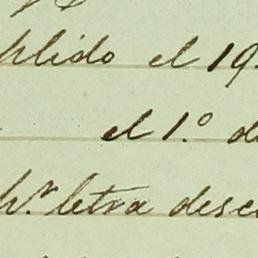 plido el 19
el 1.º de
letra desc